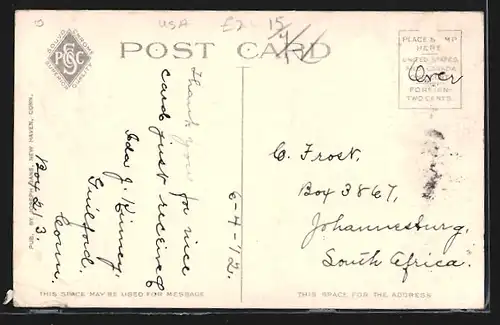 USA £2 15/4/12
POST CARD
PLACE STAMP
HERE
UNITED STATES
Over
FOREIGN
TWO CENTS
Thank you for nice
card just received
Ida J. Kinney
Guilford,
Conn.
Box 213
6-4-12.
C. Frost.
Box 3867,
Johannesburg,
South Africa.
THIS SPACE MAY BE USED FOR MESSAGE
THIS SPACE FOR THE ADDRESS